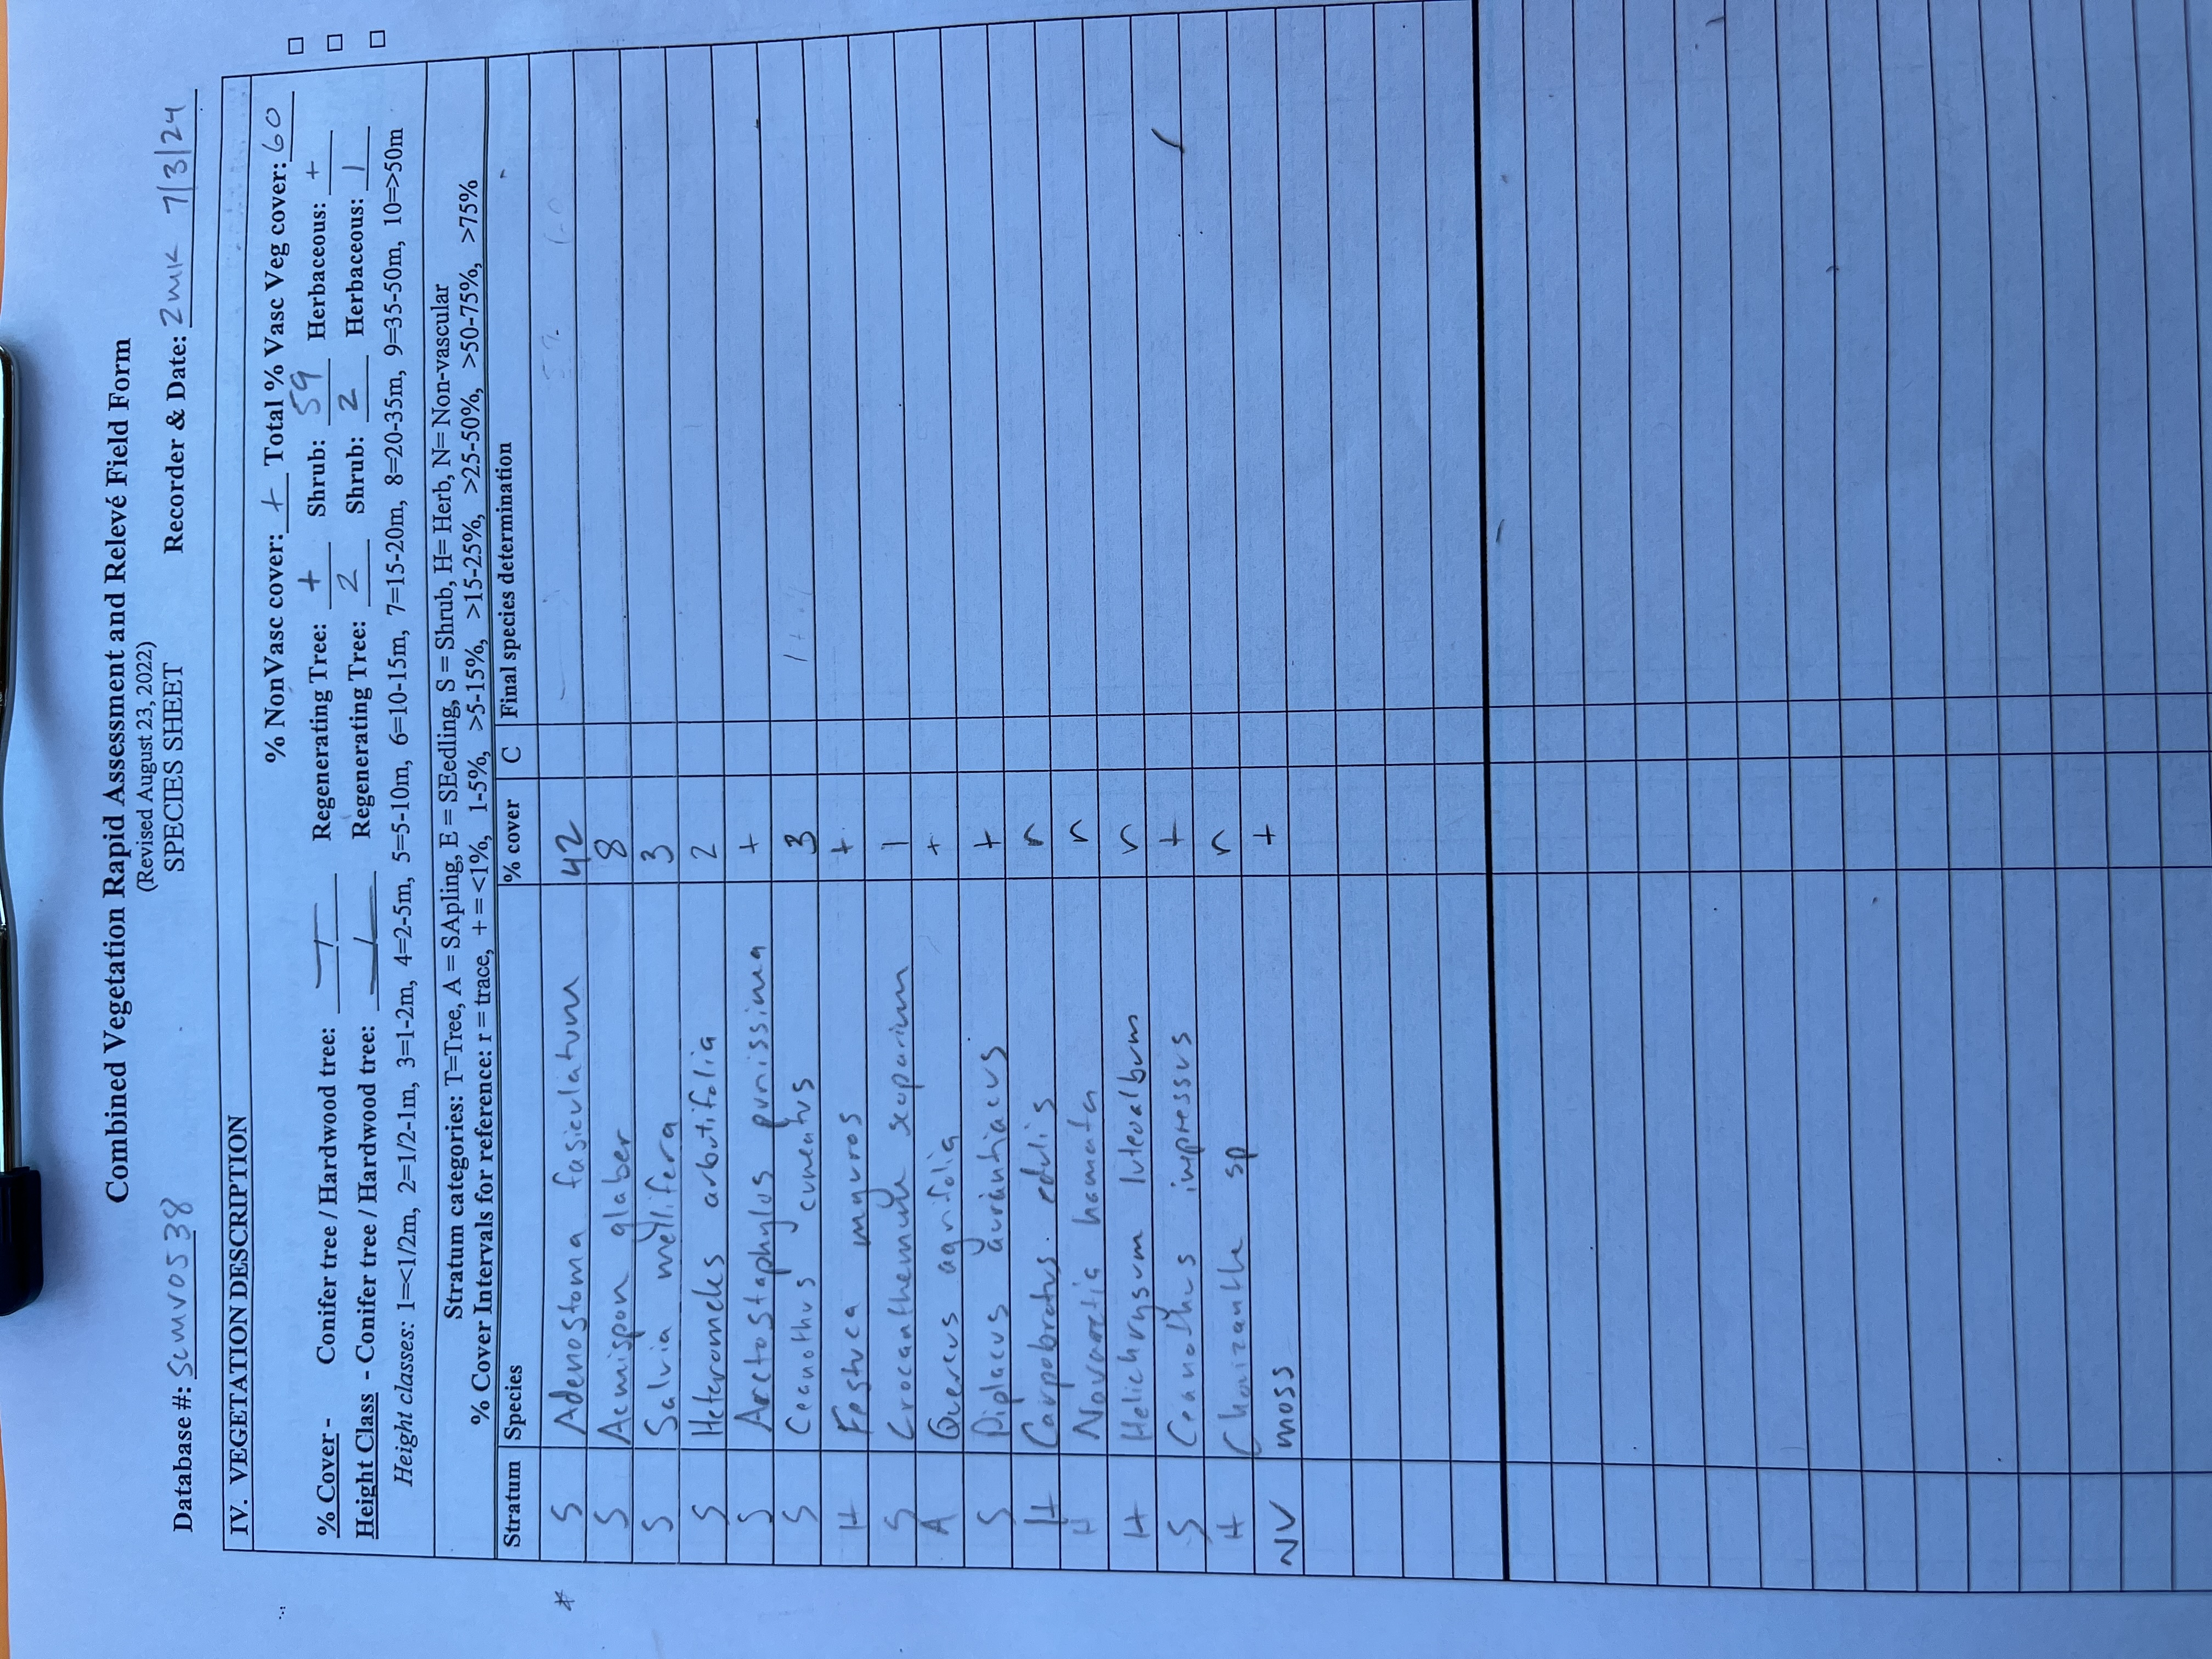 Combined Vegetation Rapid Assessment and Relevé Field Form
(Revised August 23, 2022)
Database #: SCMV0538 SPECIES SHEET Recorder & Date: ZMK 7/3/24
IV. VEGETATION DESCRIPTION
% NonVasc cover: + Total % Vasc Veg cover: 60
% Cover - Conifer tree / Hardwood tree: — / — Regenerating Tree: + Shrub: 59 Herbaceous: +
Height Class - Conifer tree / Hardwood tree: — / — Regenerating Tree: 2 Shrub: 2 Herbaceous: 1
Height classes: 1=<1/2m, 2=1/2-1m, 3=1-2m, 4=2-5m, 5=5-10m, 6=10-15m, 7=15-20m, 8=20-35m, 9=35-50m, 10=>50m
Stratum categories: T=Tree, A = SApling, E = SEedling, S = Shrub, H= Herb, N= Non-vascular
% Cover Intervals for reference: r = trace, + = <1%, 1-5%, >5-15%, >15-25%, >25-50%, >50-75%, >75%
Stratum Species % cover C Final species determination
* S Adenostoma fasiculatum 42
S Acmispon glaber 8
S Salvia mellifera 3
S Heteromeles arbutifolia 2
S Arctostaphylus purissima +
S Ceanothus cuneatus 3
H Festuca myuros +
S Crocanthemum scoparium 1
A Quercus agrifolia +
S Diplacus aurantiacus +
H Carpobrotus edulis r
H Navarretia hamata r
H Helichrysum luteoalbum r
S Ceanothus impressus +
H Chorizanthe sp r
NV moss +